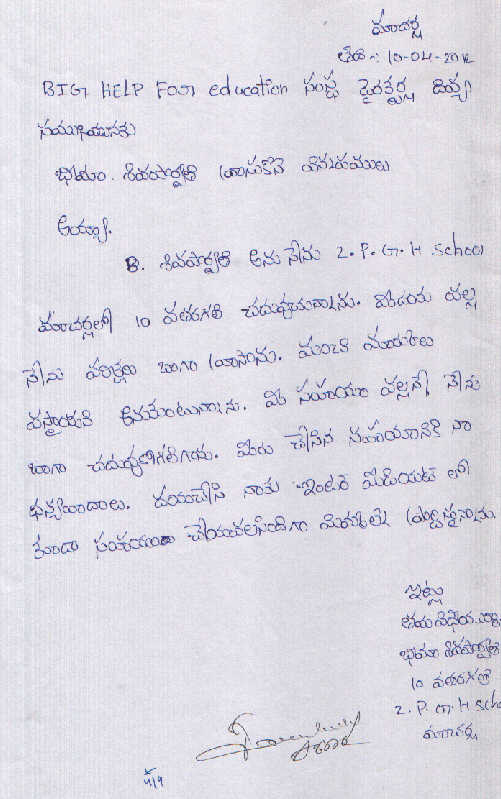 మాచర్ల
తేది :- 10-04-2012
BIG HELP FOR education సంస్థ డైరక్టర్ల దివ్య
సముఖమునకు
భీమా. శివపార్వతి వ్రాసుకొనే విన్నపములు
అయ్యా.
B. శివపార్వతి అను నేను Z. P. G. H. School
మాచర్లలో 10 వతరగతి చదువుచున్నాను. మీదయ వల్ల
నేను పరీక్షలు బాగా వ్రాసాను. మంచి మార్కులు
వస్తాయని అనుకుంటున్నాను. మీ సహాయం వల్లనే నేను
బాగా చదువ్వకోగలిగాను. మీరు చేసిన సహాయానికి నా
ధన్యవాదాలు. దయచేసి నాకు ఇంటర్ మీడియట్ లో
కూడా సహాయం చేయవలసిందిగా మిమ్మల్ని ప్రార్థిస్తున్నాను.
ఇట్లు
తమ విధేయురాలు
భీమా శివపార్వతి
10 వతరగతి
Z. P. G. H Scho
మాచర్ల